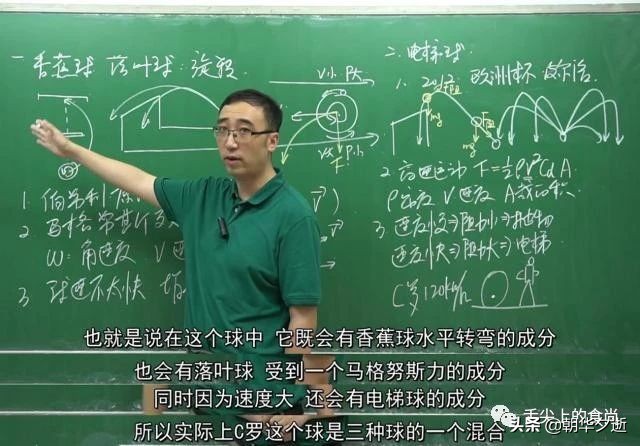 一 香蕉球 落叶球:旋转
v小 P大
v大 P小
F
1. 伯努利
2 马格努斯
ω:角速度 V
3 球速不太快
二.电梯球
1. 2012 欧洲杯 皮尔洛
mg
mg
2 高速运动 F=½ρV²CdA
ρ密度 V速度 A截面积
3 速度慢⇒阻力小⇒抛物
速度快⇒阻力大⇒电梯
C罗 120km/h
也就是说在这个球中 它既会有香蕉球水平转弯的成分
也会有落叶球 受到一个马格努斯力的成分
同时因为速度大 还会有电梯球的成分
所以实际上C罗这个球是三种球的一个混合
舌尖上的食尚
头条 @朝华夕逝